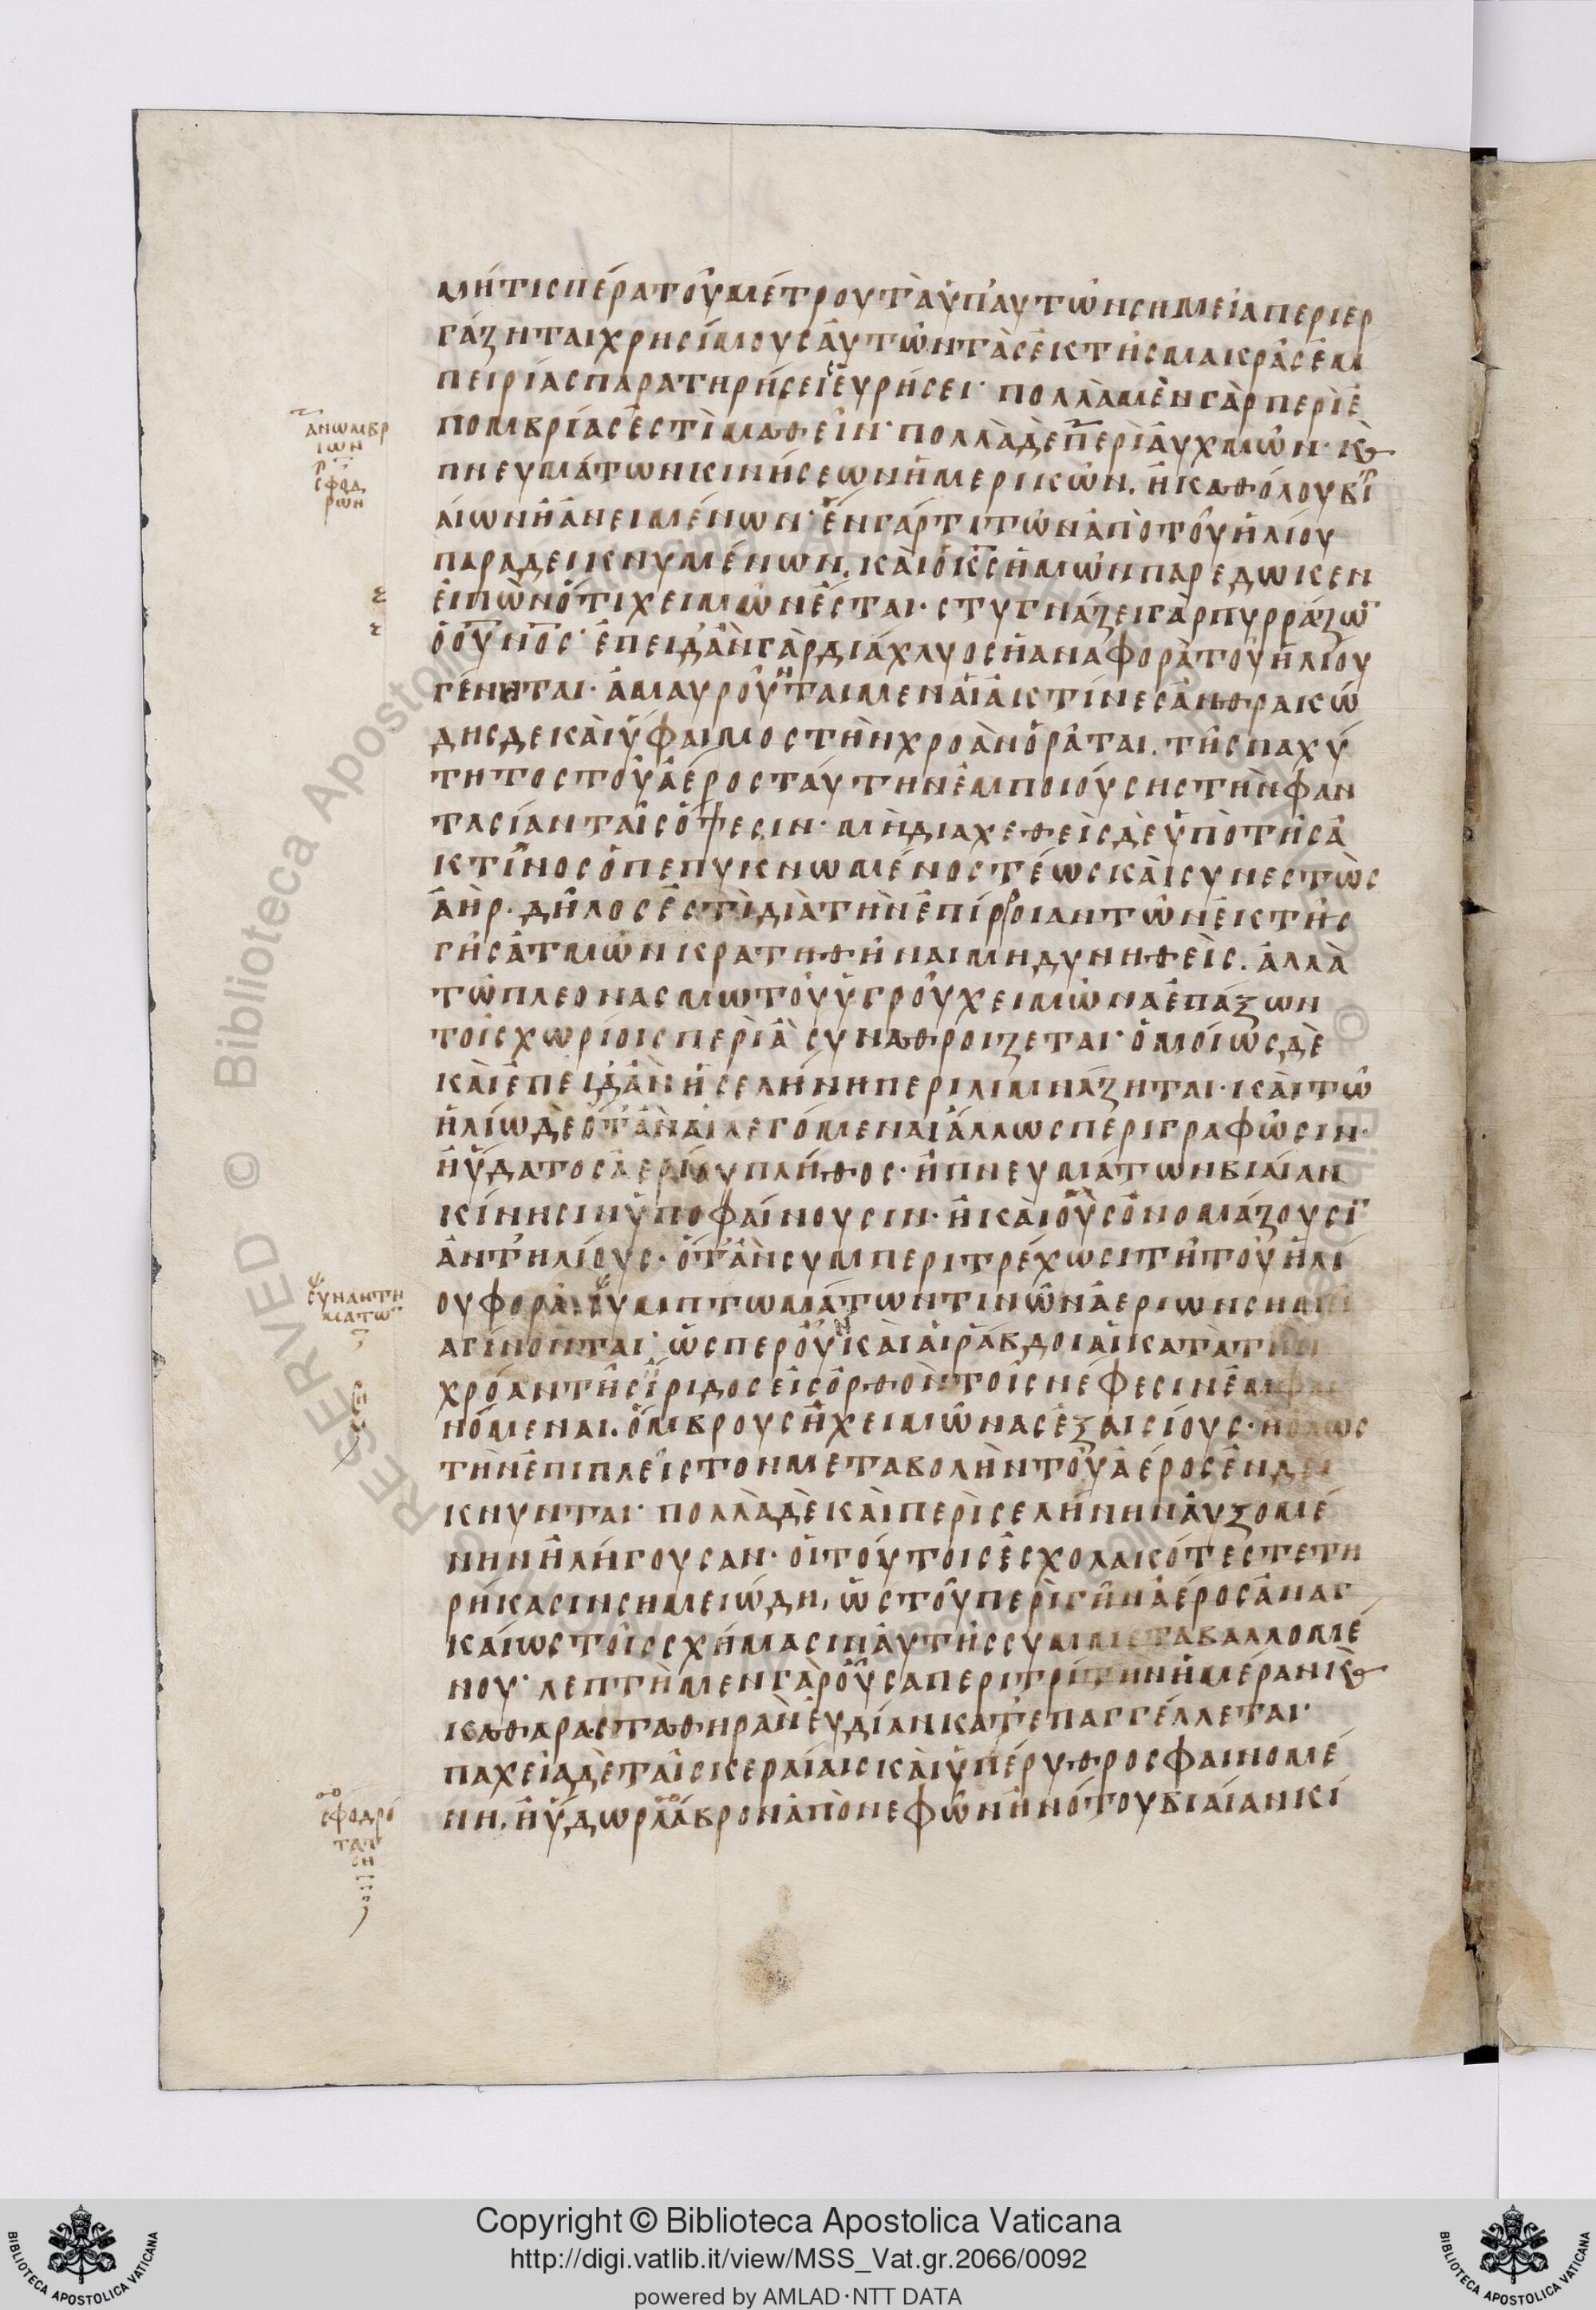 μήτισπέρατοῦμέτρουτὰὑπ'αυτῶνσημεῖαπεριερ
γάζηταιχρησίμουσἀυτῶντὰσἐκτῆσμακρᾶσἐμ
πειρίασπαρατηρήσεισἑυρήσει· πολλὰμὲνγὰρπερὶἐ
πομβρίασἐστὶμαθεῖν· πολλὰδὲπερὶἀυχμῶν· κὶ
πνευμάτωνκινήσεωνἡμερικῶν, ἢκαθόλουβι
αίωνἢἀνειμένων· ἓνγάρτιτῶνἀπὸτοῦἡλίου
παραδεικνυμένων, κὰιὁκσἡμῶνπαρεδωκεν
ἐιπὼνὅτιχειμὼνἔσται· στυγνάζειγὰρπυρράζω
ὁουνοσ· ἐπειδἂνγὰρδιάχλυοσἡαναφορὰτοῦἡλίου
γένηται· ἀμαυροῦνταιμεναἱἀκτίνεσἀνθρακώ
δησδεκαὶὕφαιμοστὴνχροὰνὁρᾶται, τῆσπαχύ
τητοστοῦἀέροσταύτηνἐμποιούσηστὴνφαν
τασίανταῖσὄψεσιν· μὴδιαχεθεὶσδὲὑπὸτῆσἀ
κτῖνοσὁπεπυκνωμένοστέωσκὰισυνεστὼσ
ἀὴρ· δῆλοσἐστὶδιὰτὴνἐπίρροιαντῶνἐκτῆσ
γῆσἀτμῶνκρατηθῆναιμηδυνηθεὶσ, ἀλλὰ
τῶπλεονασμωτοῦὑγροῦχειμῶναἐπάξων
τοῖσχωρίοισπερὶἃ συναθροιζεται· ὁμοίωσδὲ
κὰιἐπειδὰνἡσελήνηπεριλιμνάζηται· κὰιτῶ
ἡλίωδὲὅτ'ἂναἱλεγόμεναιἅλλωσπεριγραφῶσιν·
ἢὕδατοσἀερίουπλῆθοσ· ἢπνευμάτωνβιαίαν
κίνησινὑποφαίνουσιν· ἢκαὶοὓσὀνομάζουσι
ἀντηλίουσ· ὅτ'ἂνσυμπεριτρέχωσιτῆτοῦἡλί
ουφορᾶ, συμπτωμάτωντινῶνἀεριωνσημεῖ
αγίνονται· ὥσπεροὖνκὰιἁιράβδοιἁικατὰτὴν
χρόαντῆσἴριδοσἐισὀρθὸντοῖσνέφεσινἐμφαι
νόμεναι, ὄμβρουσἢχειμῶνασἐξαισίουσ· ἢὅλωσ
τὴνἐπιπλεῖστονμεταβολὴντοῦἀέροσἐνδεί
κνυνται· πολλὰδὲκὰιπερὶσελήνηνἀυξομέ
νηνἢλήγουσαν· ὁιτούτοισἐσχολακότεστετη
ρήκασινσημειώδη, ὡστοῦπερὶγῆνἀέροσἀναγ
καίωστοῖσσχήμασιναὐτῆσσυμμεταβαλλομέ
νου· λεπτὴμενγὰροὖσαπεριτρίτηνἡμέρανκὶ
καθαρασταθηρὰνεὐδίανκατεπαγγέλλεται·
παχεῖαδὲταῖσκεραίαισκὰιὑπέρυθροσφαινομέ
νη, ἢὕδωρλάβρονἀπὸνεφῶνἢνότουβιαίανκί
ανωμβρ
ιων
σφοδ
ρων
συναντη
ματω
σφοδρό
τατ
Copyright © Biblioteca Apostolica Vaticana
http://digi.vatlib.it/view/MSS_Vat.gr.2066/0092
powered by AMLAD·NTT DATA
BIBLIOTECA APOSTOLICA VATICANA
BIBLIOTECA APOSTOLICA VATICANA